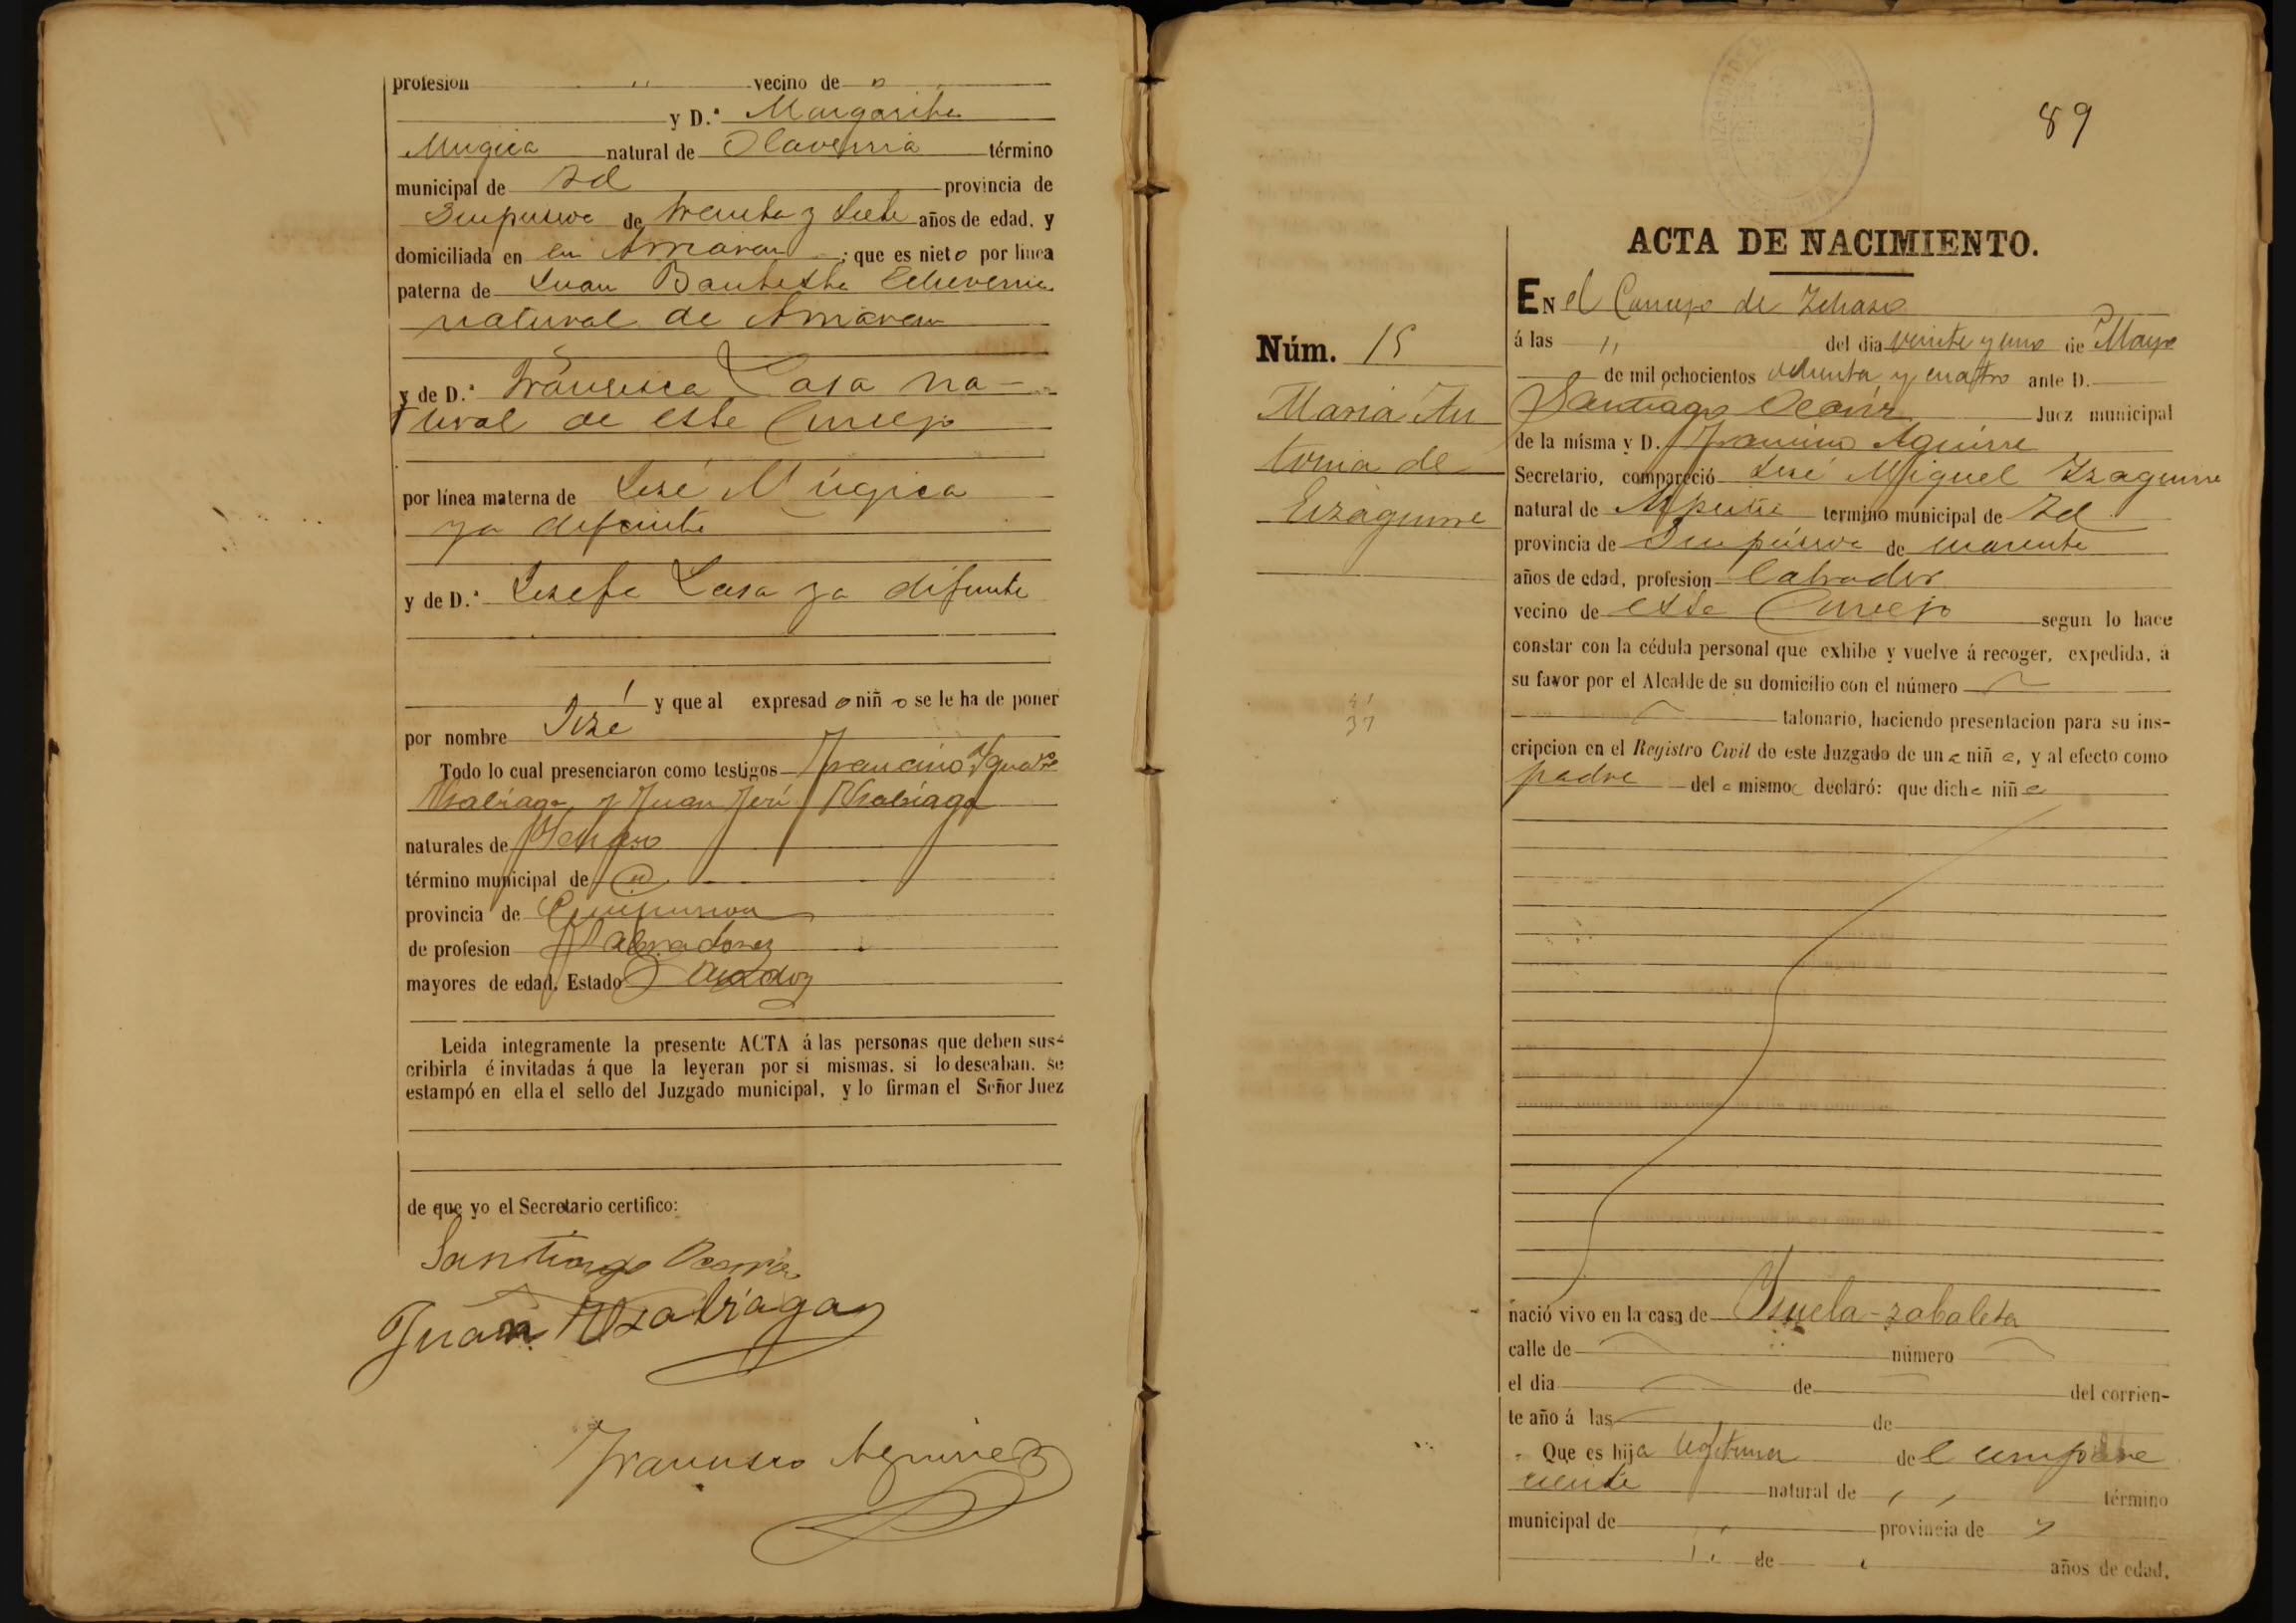 profesion " vecino de "
y D.ª Margarita
Mugica natural de Olaverria término
municipal de Id provincia de
Guipuzcoa de treinta y siete años de edad, y
domiciliada en en Amarau ; que es nieto por línea
paterna de Juan Bautista Echeverria
natural de Amarau
y de D.ª Francisca Lasa na-
tural de este Concejo
por línea materna de José Múgica
ya difunto
y de D.ª Josefa Lasa ya difunta
y que al expresado niño se le ha de poner
por nombre José
Todo lo cual presenciaron como testigos Francisco Ignacio
Usabiaga y Juan José Usabiaga
naturales de
término municipal de id
provincia de Guipuzcoa
de profesion Labradores
mayores de edad, Estado Casados
Leida integramente la presente ACTA á las personas que deben sus-
cribirla é invitadas á que la leyeran por sí mismas, si lo deseaban, se
estampó en ella el sello del Juzgado municipal, y lo firman el Señor Juez
de que yo el Secretario certifico:
Santiago Ocariz
Juan Usabiaga
Francisco Aguirre
89
ACTA DE NACIMIENTO.
EN el Concejo de
á las " del dia veinte y uno de Mayo
de mil ochocientos ochenta y cuatro ante D.
Santiago Ocariz Juez municipal
de la misma y D. Francisco Aguirre
Secretario, compareció José Miguel Izaguirre
natural de Azpeitia termino municipal de Id
provincia de Guipúzcoa de cuarenta
años de edad, profesion labrador
vecino de este Concejo segun lo hace
constar con la cédula personal que exhibe y vuelve á recoger, expedida, á
su favor por el Alcalde de su domicilio con el número
talonario, haciendo presentacion para su ins-
cripcion en el Registro Civil de este Juzgado de una niña, y al efecto como
padre del a misma declaró: que dicha niña
Núm. 15
Maria An
tonia de
Eizaguirre
37
nació vivo en la casa de Ysuela-zabaleta
calle de número
el dia de del corrien-
te año á las de
Que es hija legitima del compare
ciente natural de " término
municipal de " provincia de "
" de " años de edad,